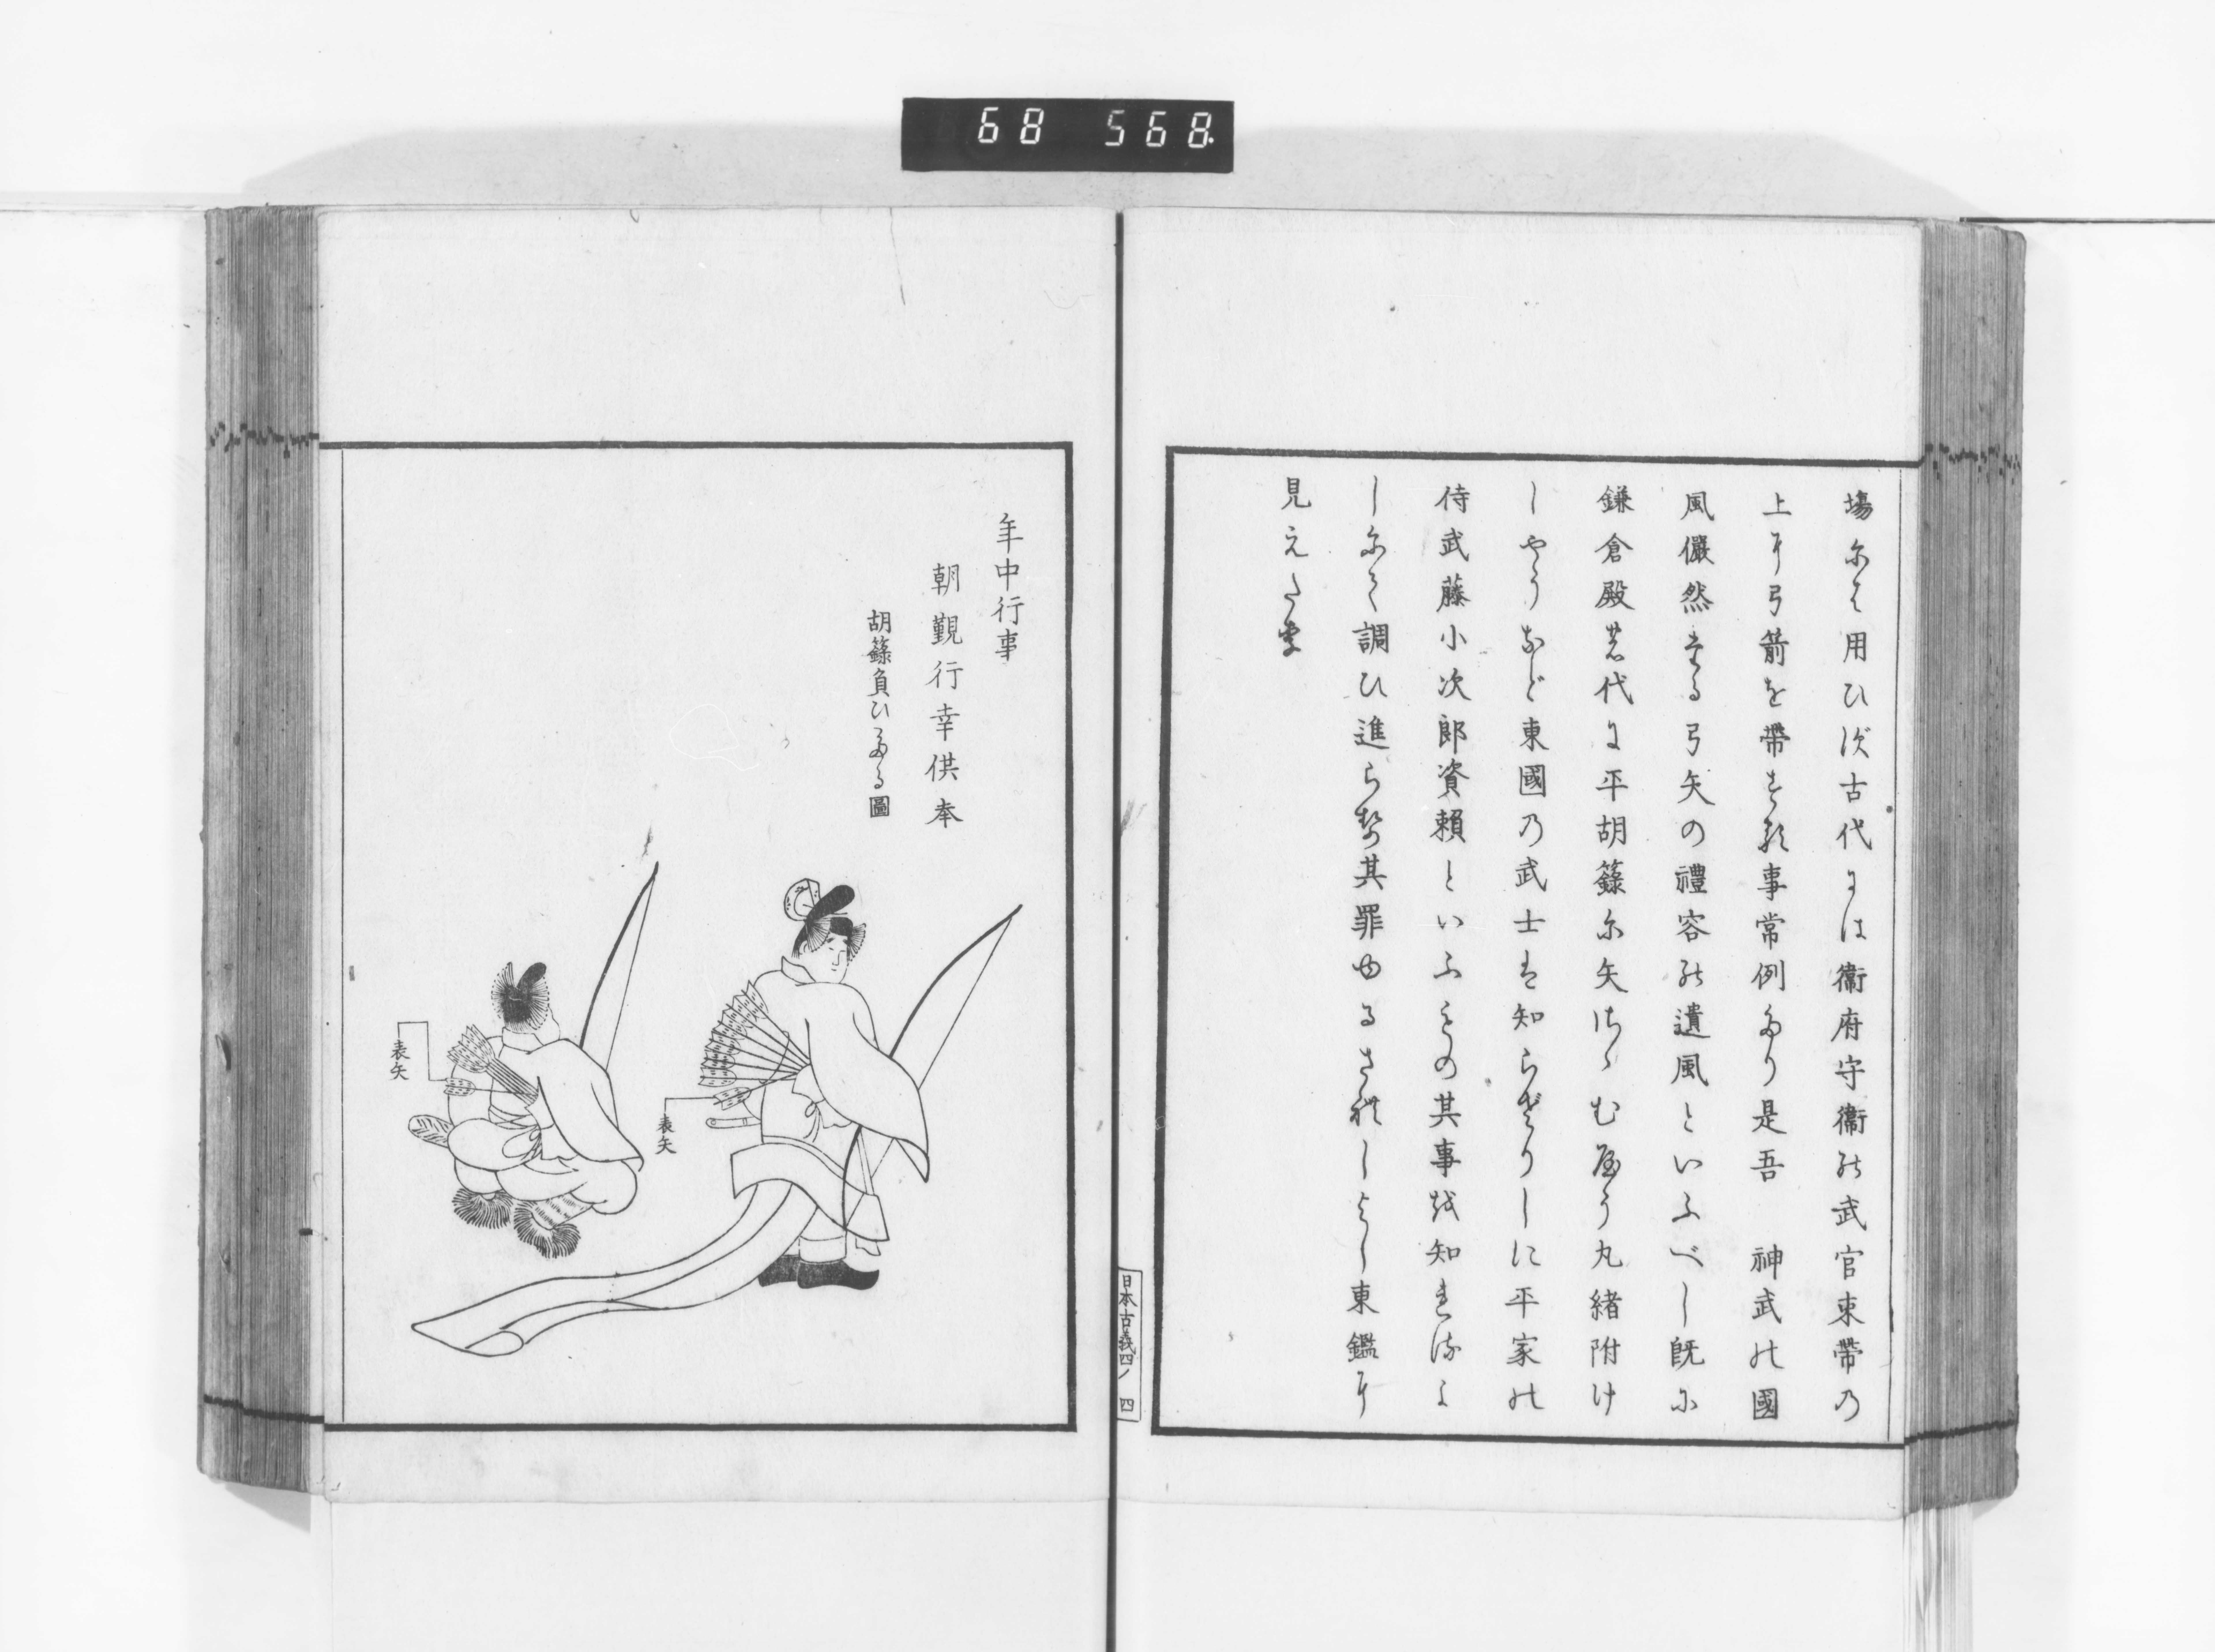 68 568
場尓ハ用ひず古代には衞府守衞の武官束帶乃
上に弓箭を帶する事常例なり是吾 神武の國
風儼然たる弓矢の禮容の遺風といふべし既に
鎌倉殿の代に平胡籙に矢はくむ やう丸緒附け
しやうなど東國乃武士は知らざりしに平家の
侍武藤小次郎資賴といふものの其事を知れるよ
しにて調ひ進らせ其罪ゆるされしよし東鑑に
見えたり
日本古義四ノ 四
年中行事
朝覲行幸供奉
胡籙負ひたる圖
表矢
表矢